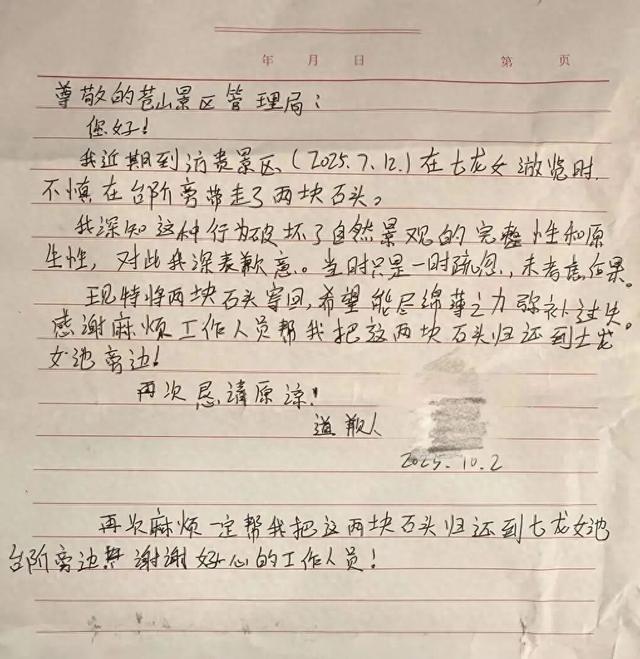 年 月 日 第 页
尊敬的苍山景区管理局：
您好！
我近期到访贵景区（2025.7.12.）在七龙女游览时，
不慎在台阶旁带走了两块石头。
我深知这种行为破坏了自然景观的完整性和原
生性，对此我深表歉意。当时只是一时疏忽，未考虑后果。
现特将两块石头寄回，希望能尽绵薄之力弥补过失。
感谢麻烦工作人员帮我把这两块石头归还到七龙
女池旁边！
再次恳请原谅！
道歉人
2025.10.2
再次麻烦一定帮我把这两块石头归还到七龙女池
台阶旁边 谢谢好心的工作人员！